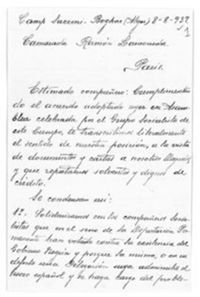 Camp Suzzoni - Boghar (Alger) 8-8-939
Camarada Ramón Lamoneda
Paris.
Estimado compañero: Cumplimentan
do el acuerdo adoptado ayer en Asam
blea celebrada por el Grupo Socialista de
este Campo, te transcribimos literalmente
el sentido de nuestra posición, a la vista
de documentos y cartas a nosotros llegados
y que reputamos solventes y dignos de
crédito.
Lo condensan así:
1º. Solidarizarnos con los compañeros Socia
listas que en el seno de la Diputación Per
manente han votado contra la existencia del
Gobierno Negrín y porque la misma, o en su
defecto una Delegación suya administre el
tesoro español y se haga cargo del proble-